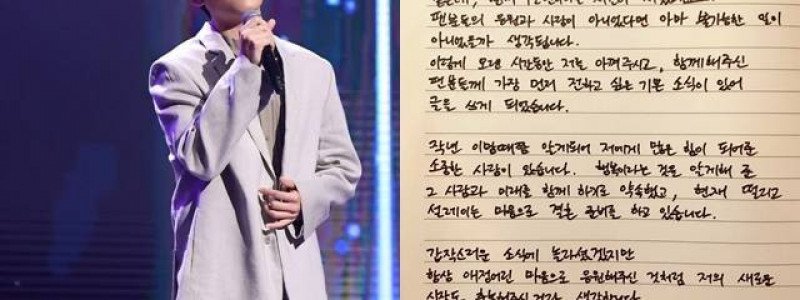 팬분들의 응원과 사랑이 아니었다면 아마 불가능한 일이
아니었을까 생각됩니다.
이렇게 오랜 시간동안 저를 아껴주시고, 함께해주신
팬분들께 가장 먼저 전하고 싶은 기쁜 소식이 있어
글을 쓰게 되었습니다.
작년 이맘때쯤 알게되어 저에게 많은 힘이 되어준
소중한 사람이 있습니다. 행복이라는 것을 알게해 준
그 사람과 미래를 함께 하기로 약속했고, 현재 떨리고
설레이는 마음으로 결혼 준비를 하고 있습니다.
갑작스러운 소식에 놀라셨겠지만
항상 애정어린 마음으로 응원해주신 것처럼 저의 새로운